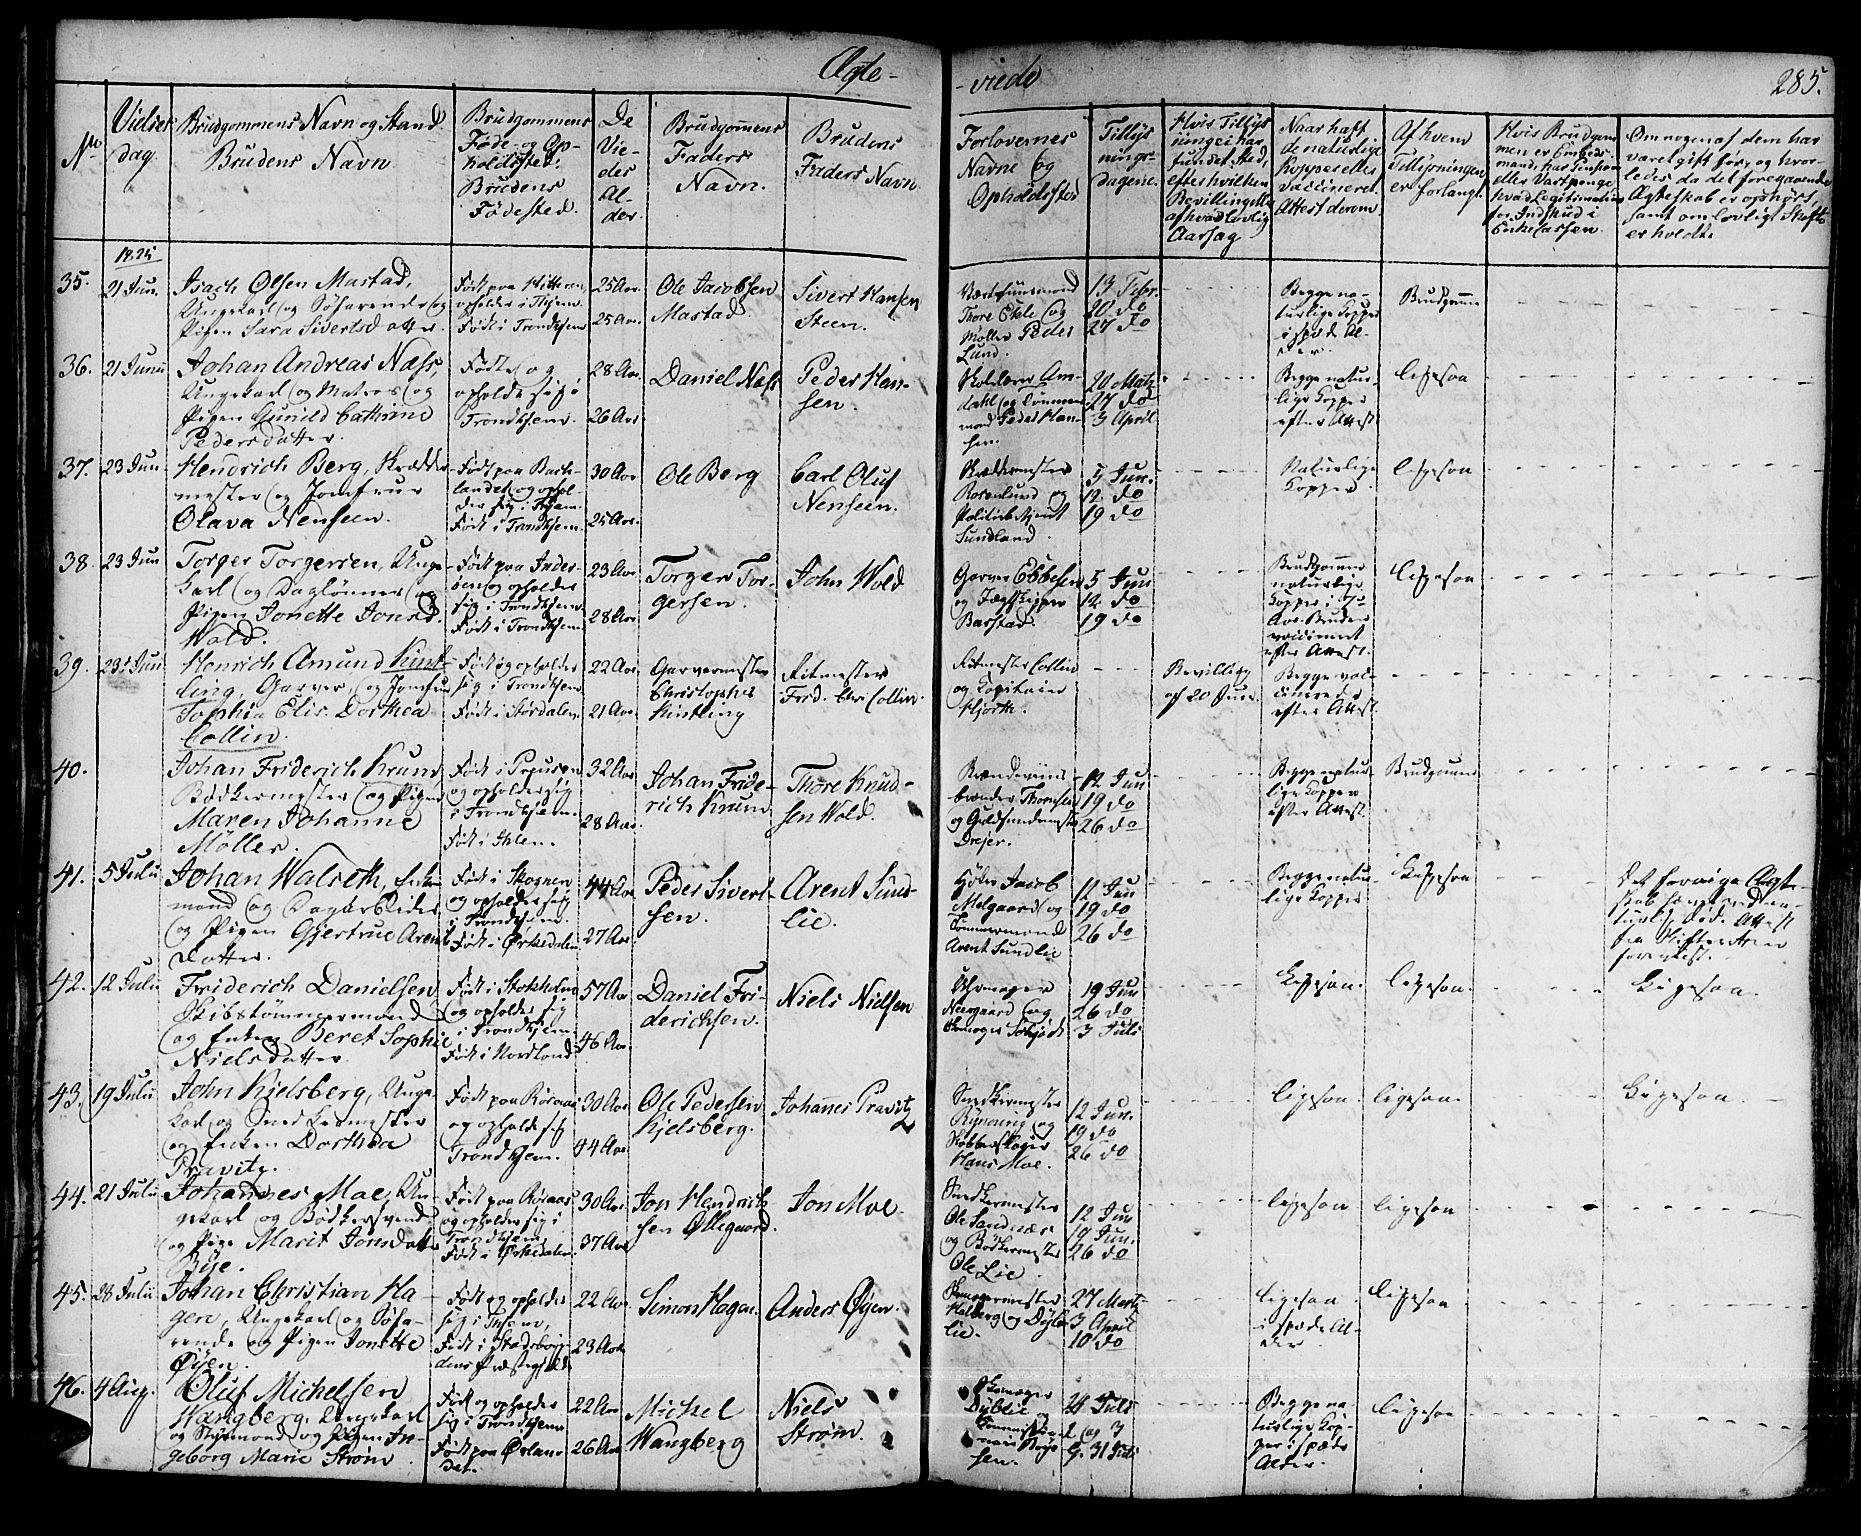 Ægte-
-viede
285.
No
Vielses
dag.
Brudgommens Navn og Stand.
Brudens Navn.
Brudgommens
Føde- og Op-
holdssted.
Brudens
Fødested.
De
Vie-
des
Al-
der.
Brudgommens
Faders
Navn.
Brudens
Faders Navn.
Forlovernes
Navne og
Opholdssted
Tillys
nings-
dagene.
Hvis Tillys
ning ei har
fundet Sted,
efter hvilken
Bevilling eller
af hvad lovlig
Aarsag
Naar haft
de naturlige
Kopper eller
vaccineret.
Attest derom.
Af hvem
Tillysningen
er forlangt.
Om nogen af dem har
været gift før, og hvor-
ledes da det foregaaende
Ægteskab er ophørt,
samt om lovligt Skifte
er holdt.
1825
35.
21 Jun.
Isach Olsen Mastad,
Ungekarl og Søfarende og
Pigen Sara Sivertsdatter.
Født paa Hitteren
opholder i Thjem.
Født i Trondhjem
25 Aar.
25 Aar.
Ole Jacobsen
Mastad.
Sivert Hansen
Steen.
Thore Ekle og
Møller Peder
Lund.
13 Febr.
20 do
27 do
Begge na-
turlige Kopper
i spæde Al-
der.
Brudgomme
36.
21 Junii
Johan Andreas Næss,
Ungekarl og Matros og
Pigen Gunild Cathrine
Pedersdatter.
Født og
opholder sig i
Trondhjem.
28 Aar.
26 Aar
Daniel Næss
Peder Han-
sen.
Skolelærer Am-
dahl og Tømmer
mand Peder Han-
sen.
20 Matz
27 do
3 April
Begge natur-
lige Kopper
efter Attest
ligesaa
37.
23 Jun
Hendrich Berg, Skrædder
mester og Jomfrue
Olava Nenseen.
Født paa Bach-
landet og ophol-
der sig i Thjem.
Født i Trondhjem
30 Aar
25 Aar.
Ole Berg
Carl Oluf
Nenseen.
Skræddermester
Rosenlund og
Politiebetjent
Sundland.
5 Jun.
12 do
19 do
Naturlige
Kopper.
ligesaa
38.
23 Jun
Torger Torgersen, Unge-
karl og Dagl​ønner og
Pigen Jonette Jonsd.
Wold.
Født paa Inder-
øen og opholder
sig i Trondhjem
Født i Trondhjem
23 Aar
28 Aar.
Torger Tor-
gersen.
John Wold
Garver Ebbesen
og Jægtskipper
Barstad.
5 Jun
12 do
19 do
Brudgommen
naturlige
efter Attest.
ligesaa
39.
23d Jun
Henrich Amund Kint-
ling, Garver, og Jomfrue
Sophia Elis. Dorthea
Collin.
Født og opholder
sig i Trondhjem
Født i Stordalen
22 Aar
21 Aar.
Garvermester
Christopher
Kintling
Ritmester
Ferd. Chr. Collin.
Ritmester Collin
og Capitain
Hjorth.
Bevilling
af 20 Jun
Begge vac-
cinerede
efter Attest
40.
Johan Friderich Krum
Bødkermester og Pigen
Maren Johanne
Møller.
Født i Preusen
og opholder sig
i Trondhjem.
Født i Ihlen.
32 Aar
28 Aar.
Johan Fride-
rich Krum
Thore Knud-
sen Wold.
Brændeviins
brænder Thomsen
og Guldsmedmester
Drejer.
12 Jun
19 do
26 do
Begge natur-
lige Kopper
efter Attest.
Brudgommen
41.
5 Julii
Johan Walseth, Enke-
mand og Dagarbeider
og Pigen Gjertrue Arent
datter.
Født i Skognen
og opholder sig
i Trondhjem.
Født i Ørkedalen
44 Aar
27 Aar
Peder Sivert-
sen.
Arent Sund-
lie.
Jacob
Melgaard og
Tømmermand
Arent Sundlie
12 Jun
19 do
26 do
Begge natur-
lige Kopper
ligesaa
Det forrige Ægte-
42.
12 Julii
Friderich Danielsen
Skibstømmermand
og Enken Beret Sophie
Nielsdatter.
Født i Stokholm
og opholder sig
i Trondhjem
Født i Nordland
57 Aar
46 Aar
Daniel Fri-
derichsen.
Niels Nielsen
Uhrmager
Neergaard og
19 Jun
26 do
3 Juli
Ligesaa.
ligesaa.
Ligesaa.
43.
19 Julii
John Kjelsberg, Unge-
karl og Snedkermester
og Enken Dorthea
Pravitz.
Født paa Røraas
og opholder sig
Trondhjem.
30 Aar
44 Aar
Ole Pedersen
Kjelsberg.
Johannes Pravitz
Snedkermester
Rÿnning og
Kobberslager
Hans Moe.
12 Jun.
19 do
26 do
ligesaa.
ligesaa.
Ligesaa.
44.
21 Julii
Johannes Moe, Un-
gekarl og Bødkersvend
og Pige Marit Jonsdatter
Bÿe.
Født paa Røraas
og opholder sig i
Trondhjem
Født i Ørkedalen
30 Aar
37 Aar
Jon Hendrich
sen Østegaard.
Jon Moe.
Snedkermester
Ole Sandnæs
og Bødkermester
Ole Lie.
12 Jun
19 Jun.
26 do
ligesaa
ligesaa
45.
28 Julii
Johan Christian Ha-
gen, Ungekarl og Søfa-
rende og Pigen Jonette
Øÿen.
Født og opholder
sig i Thjem,
Født i Stadsbÿg-
dens Præstegjeld
22 Aar.
23 Aar
Simon Hagen.
Anders Øÿen.
Halberg og
lie.
27 Mart.
3 April
10 do
ligesaa
i spæde Al-
der.
ligesaa
46.
4 Aug.
Oluf Michelsen
Wangberg, Ungekarl
og Styrmand og Pigen In-
geborg Marie Strøm
Født og opholder
sig i Trondhjem
Født paa Ørlan-
det.
22 Aar
26 Aar
Michel
Wangberg
Niels
Strøm.
Skomager
Dÿblie og
sen.
24 Juli
og 3
31 Juli
Begge na-
turlige Kop-
per i spæde
Alder.
ligesaa